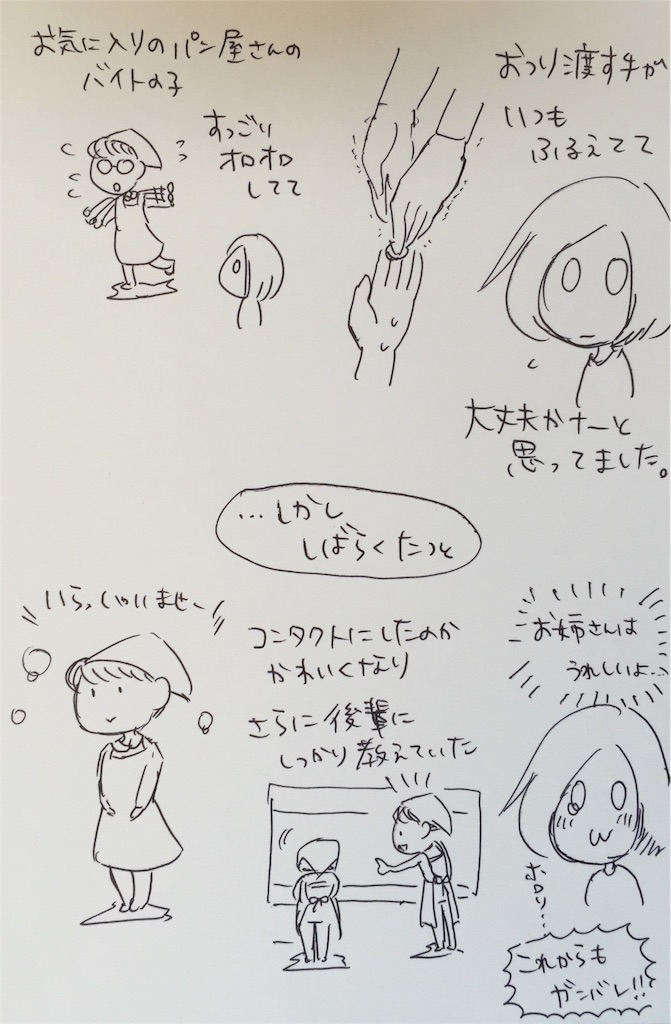 お気に入りのパン屋さんの
バイトの子
すっごり
オロオロ
してて
おつり渡す手が
いつも
ふるえてて
大丈夫かナーと
思ってました。
…しかし
しばらくたつと
いらっしゃいませー
コンタクトにしたのか
かわいくなり
さらに後輩に
しっかり教えていた
お姉さんは
うれしいよ…
ホロリ…
これからも
ガンバレ!!